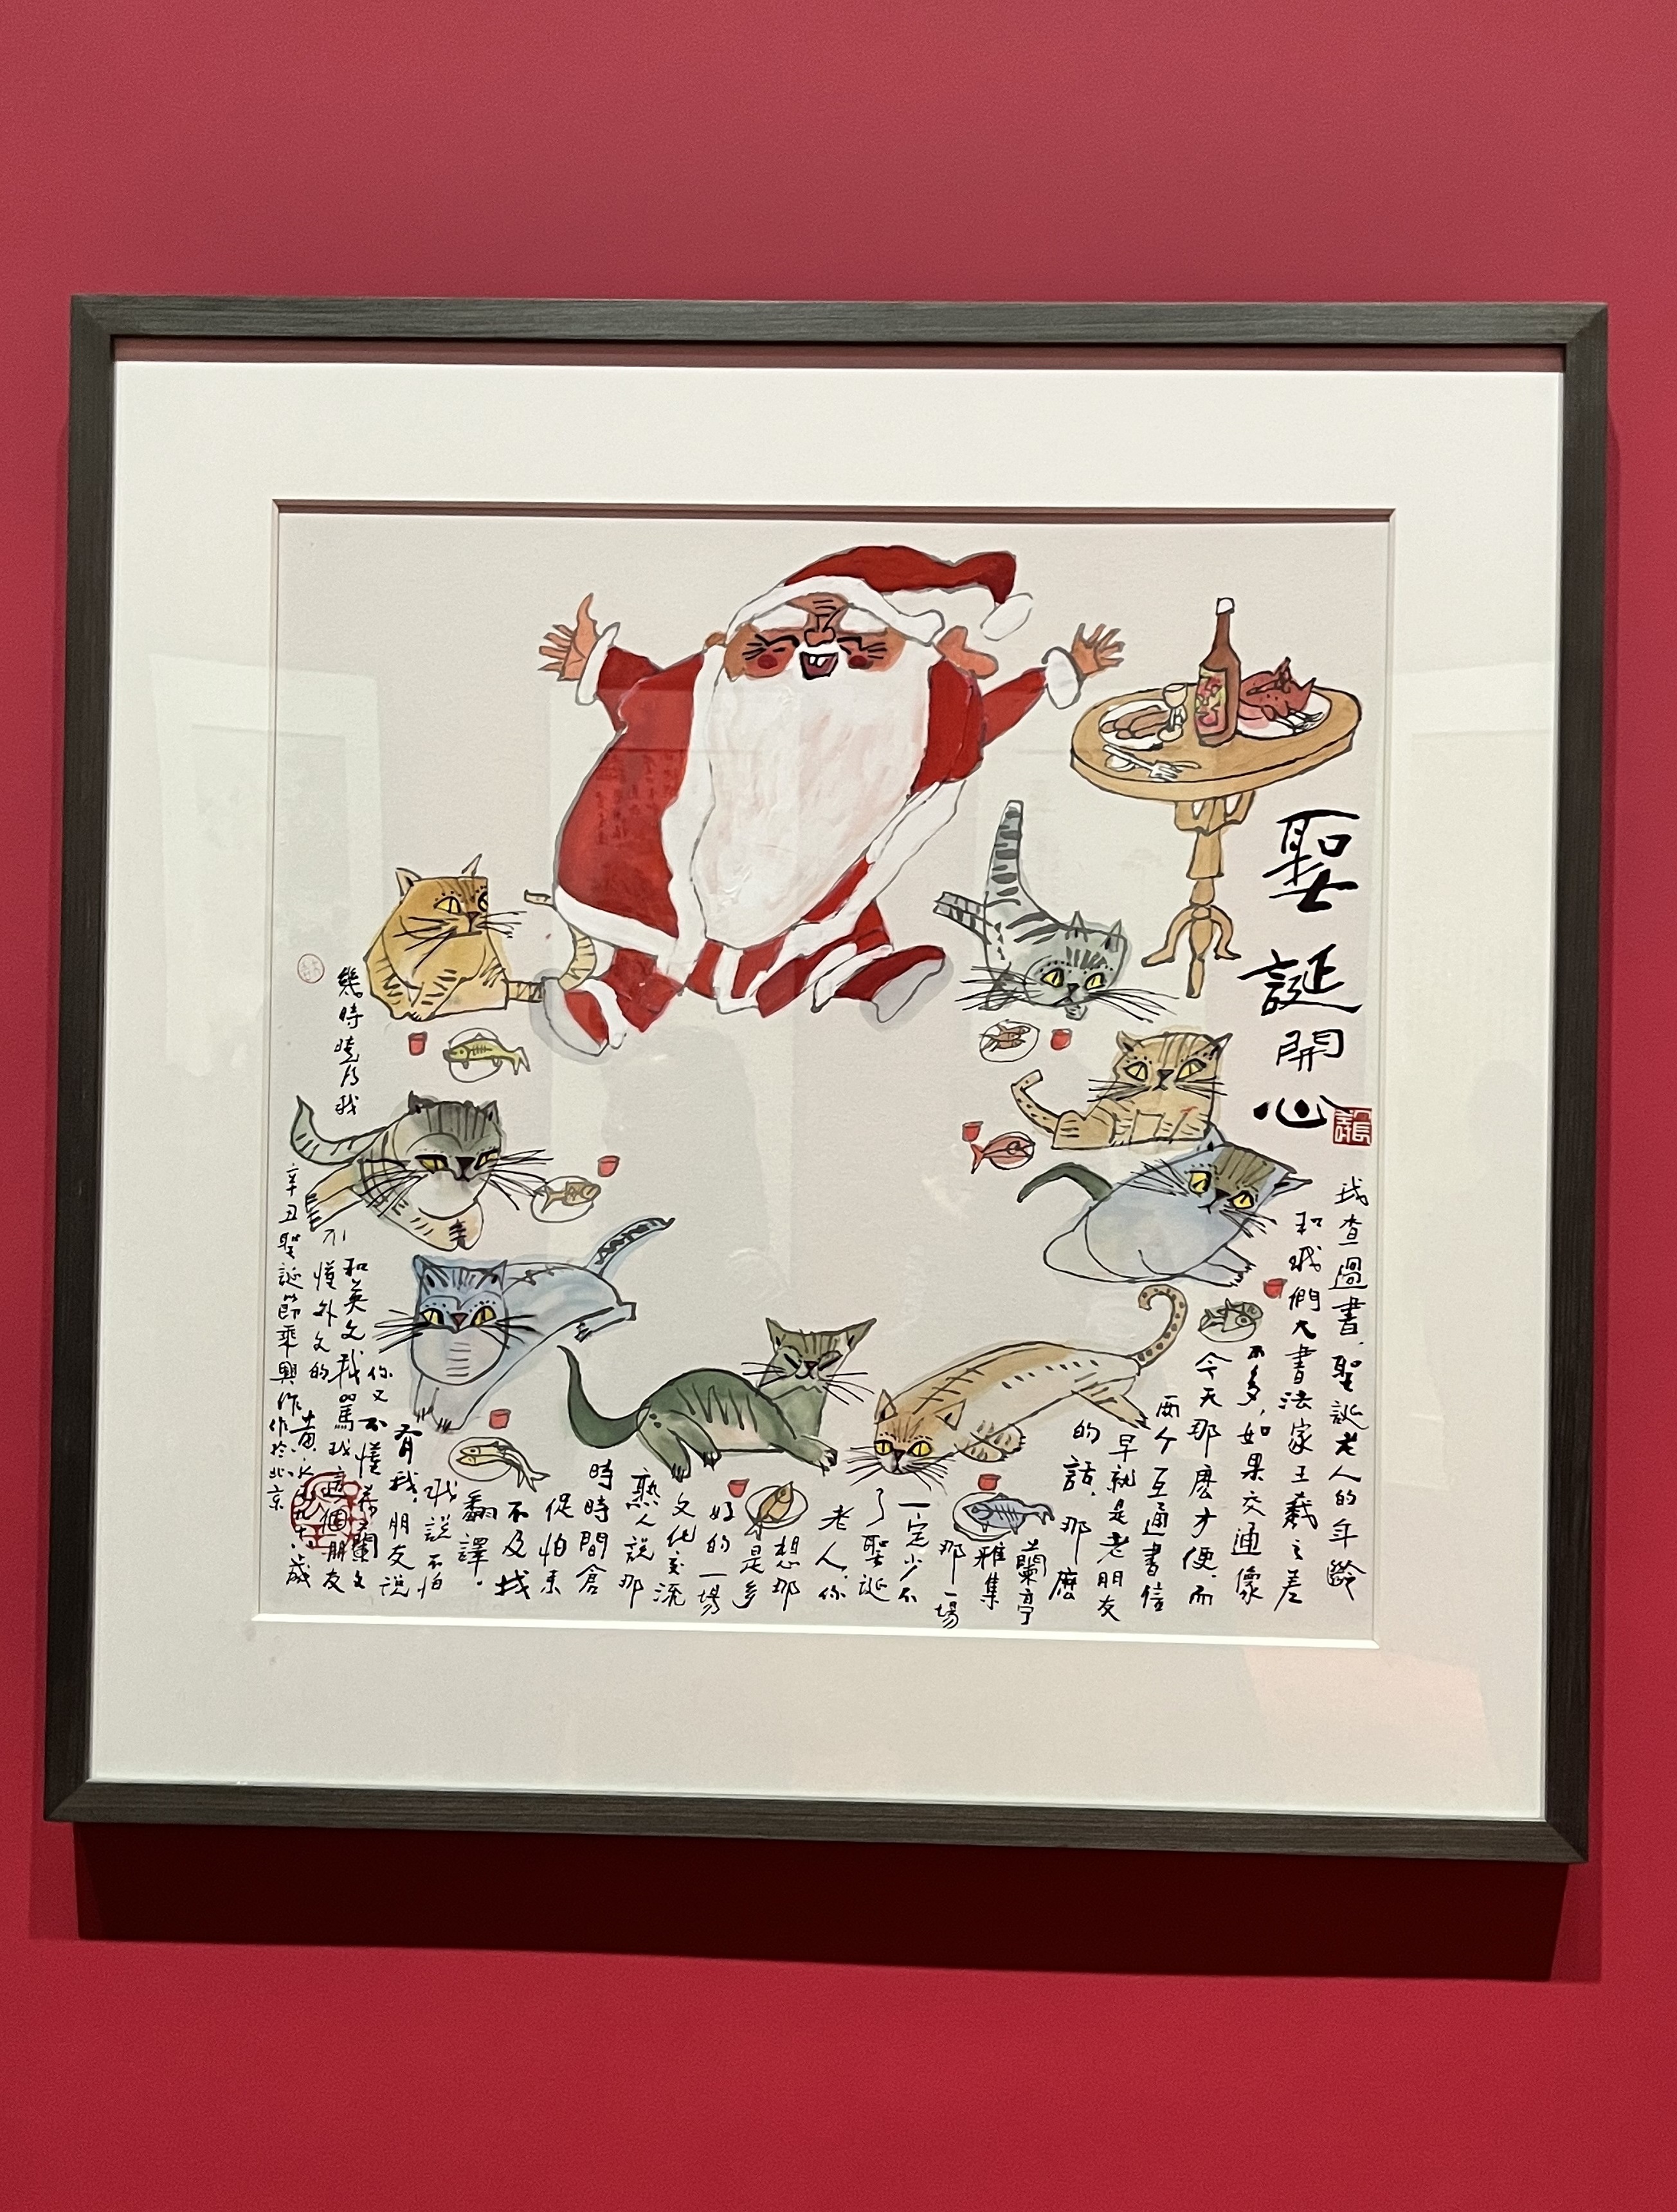 聖誕開心
我查過書，聖誕老人的年齡
和我們大書法家王羲之差
不多，如果交通像
今天那麼方便，而
兩个互通書信
早就是老朋友
的話，那麼
蘭亭
雅集
那一場
一定少不
了聖誕
老人，你
想那
是多
好的一場
文化交流
熟人說那
時時間倉
促怕来
不及找
翻譯。
我說不怕
有我，朋友說
你又不懂希蘭文
和英文我罵我這個朋友
幾時曉得我
不懂外文的
黃永玉九十八歲
辛丑聖誕節乘興作
作於北京